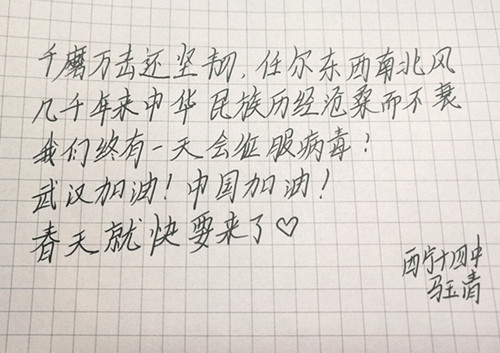 千磨万击还坚韧，任尔东西南北风
几千年来中华民族历经沧桑而不衰
我们终有一天会征服病毒！
武汉加油！中国加油！
春天就快要来了♡
西宁十四中
马玉清